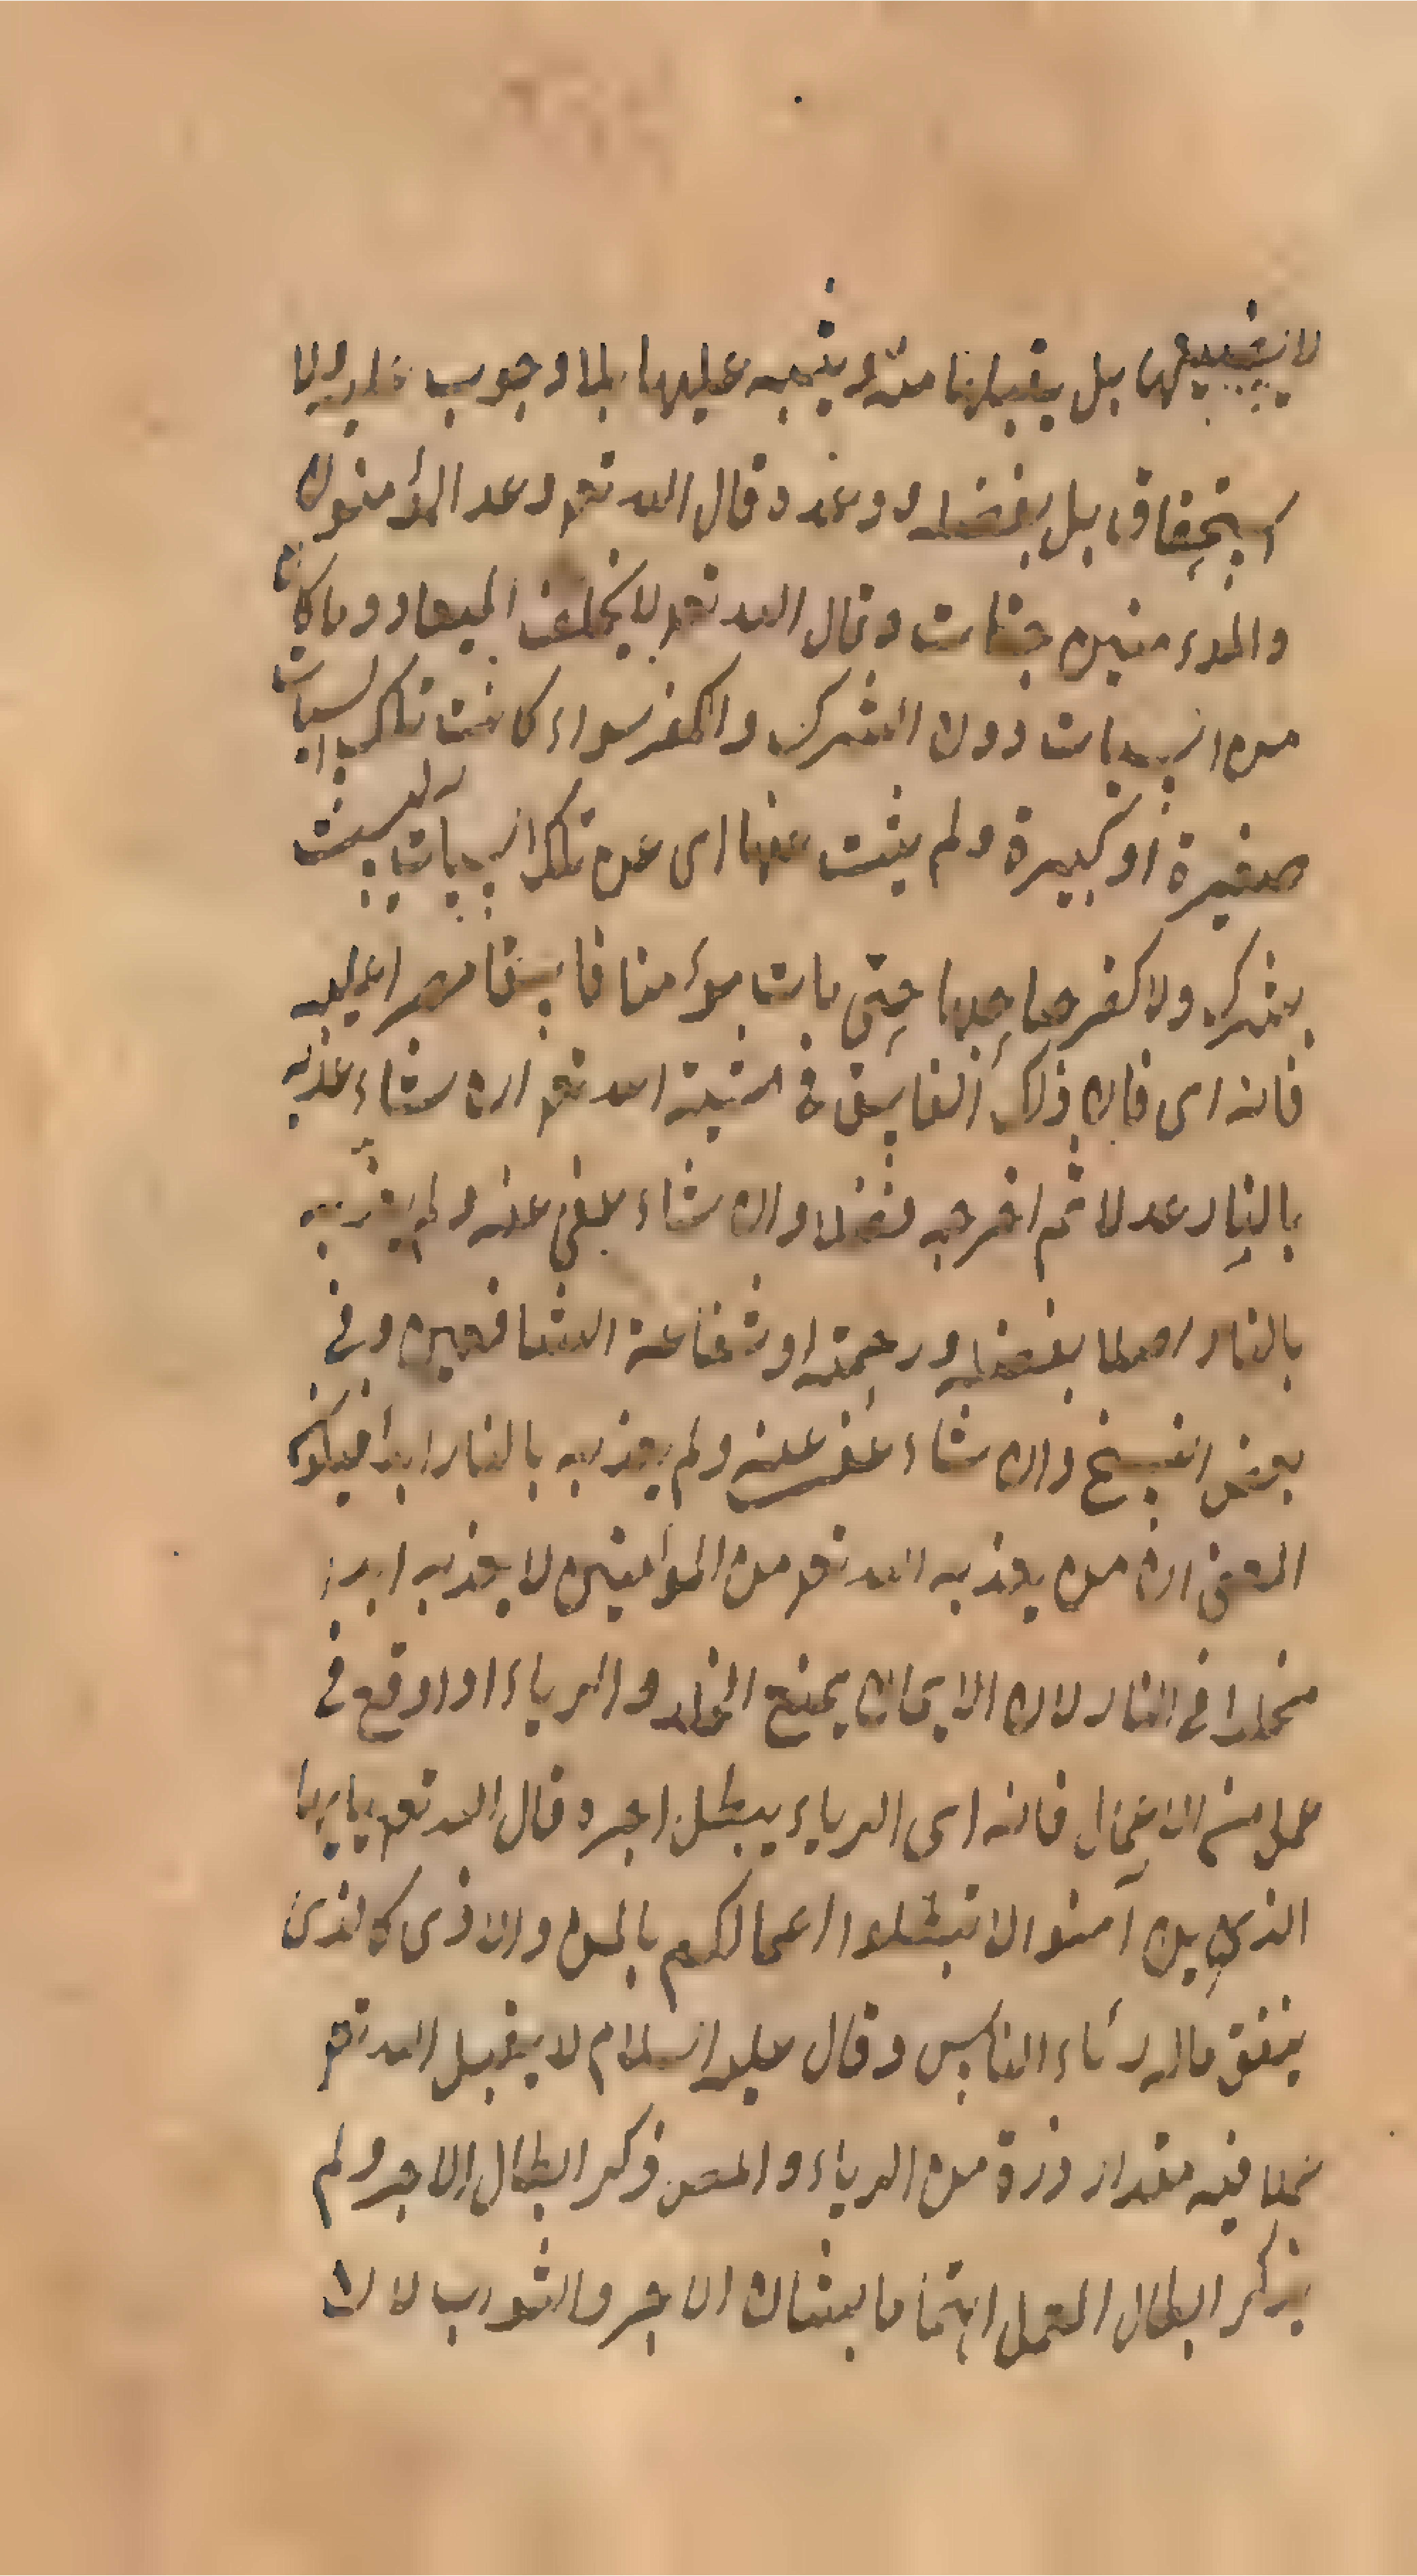 لا يضيعها بل يقبلها منه ويثيبه عليها بلا وجوب عليه ولا
استحقاق بل بفضله ووعده وقال الله تعم وعد المؤمنون
والموءمنين جنات وقال الله تعم لا يخلف الميعاد وما كان
من السيات دون الشرك والكفر سواء كانت تلك السيات
صغيرة أو كبيرة ولم يثبت عنها اى عن تلك السيات ليست
بشرك ولا كفر صاحبها حتى مات مؤمنا فاسقا مصرا عليه
فانه اى فان ذلك الفاسق فى مشية الله تعم ان شاء عذبه
بالنار عدلا ثم اخرجه فضلا وان شاء عفى عنه ولم يعذبه
بالنار اصلا بفضله ورحمته او شفاعة الشافعين وفى
بعض النسخ وان شاء عفى عنه ولم يعذبه بالنار ابدا فيكون
المعنى ان من يعذبه الله تعم من المؤمنين لا يعذبه ابدا
مخلدا فى النار لان الايمان يمنع الخلد والرياء اذا وقع فى
عمل من الاعمال فانه اى الرياء يبطل اجره قال الله تعم يا ايها
الذين آمنوا لا تبطلوا اعمالكم بالمن والاذى كالذى
ينفق ماله رئاء الناس وقال عليه السلام لا يقبل الله تعم
عملا فيه مقدار ذرة من الرياء والمص ذكر ابطال الاجر ولم
يذكر ابطال العمل اهتماما بشان الاجر والثواب لان